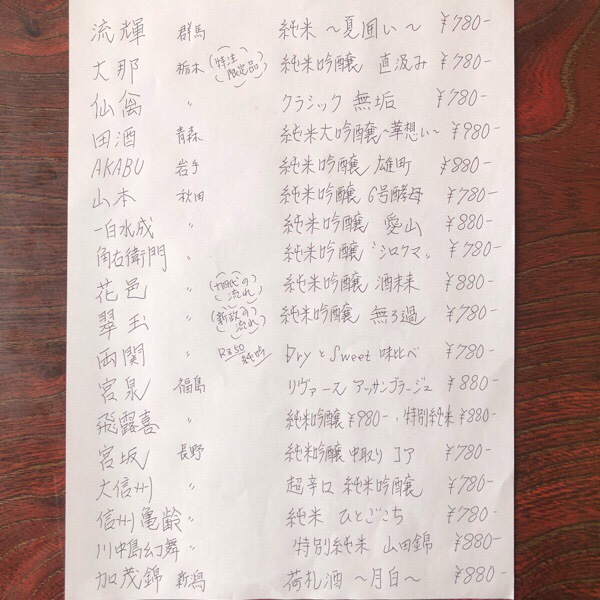 流輝 群馬 純米 〜夏囲い〜 ¥780-
大那 栃木 (特注限定品) 純米吟醸 直汲み ¥780-
仙禽 〃 クラシック 無垢 ¥780-
田酒 青森 純米大吟醸〜華想い〜 ¥980-
AKABU 岩手 純米吟醸 雄町 ¥880-
山本 秋田 純米吟醸 6号酵母 ¥780-
一白水成 〃 純米吟醸 愛山 ¥880-
角右衛門 〃 純米吟醸 "シロクマ" ¥780-
花邑 〃 (十四代の流れ) 純米吟醸 酒未来 ¥880-
翠玉 〃 (新政の流れ) 純米吟醸 無ろ過 ¥780-
両関 〃 R1350純吟 Dryとsweet 味比べ ¥780-
宮泉 福島 リヴァース アッサンブラージュ ¥880-
飛露喜 〃 純米吟醸¥980-、特別純米¥880-
宮坂 長野 純米吟醸 中取り コア ¥780-
大信州 〃 超辛口 純米吟醸 ¥780-
信州亀齢 〃 純米 ひとごこち ¥780-
川中島幻舞 〃 特別純米 山田錦 ¥880-
加茂錦 新潟 荷札酒 〜月白〜 ¥880-